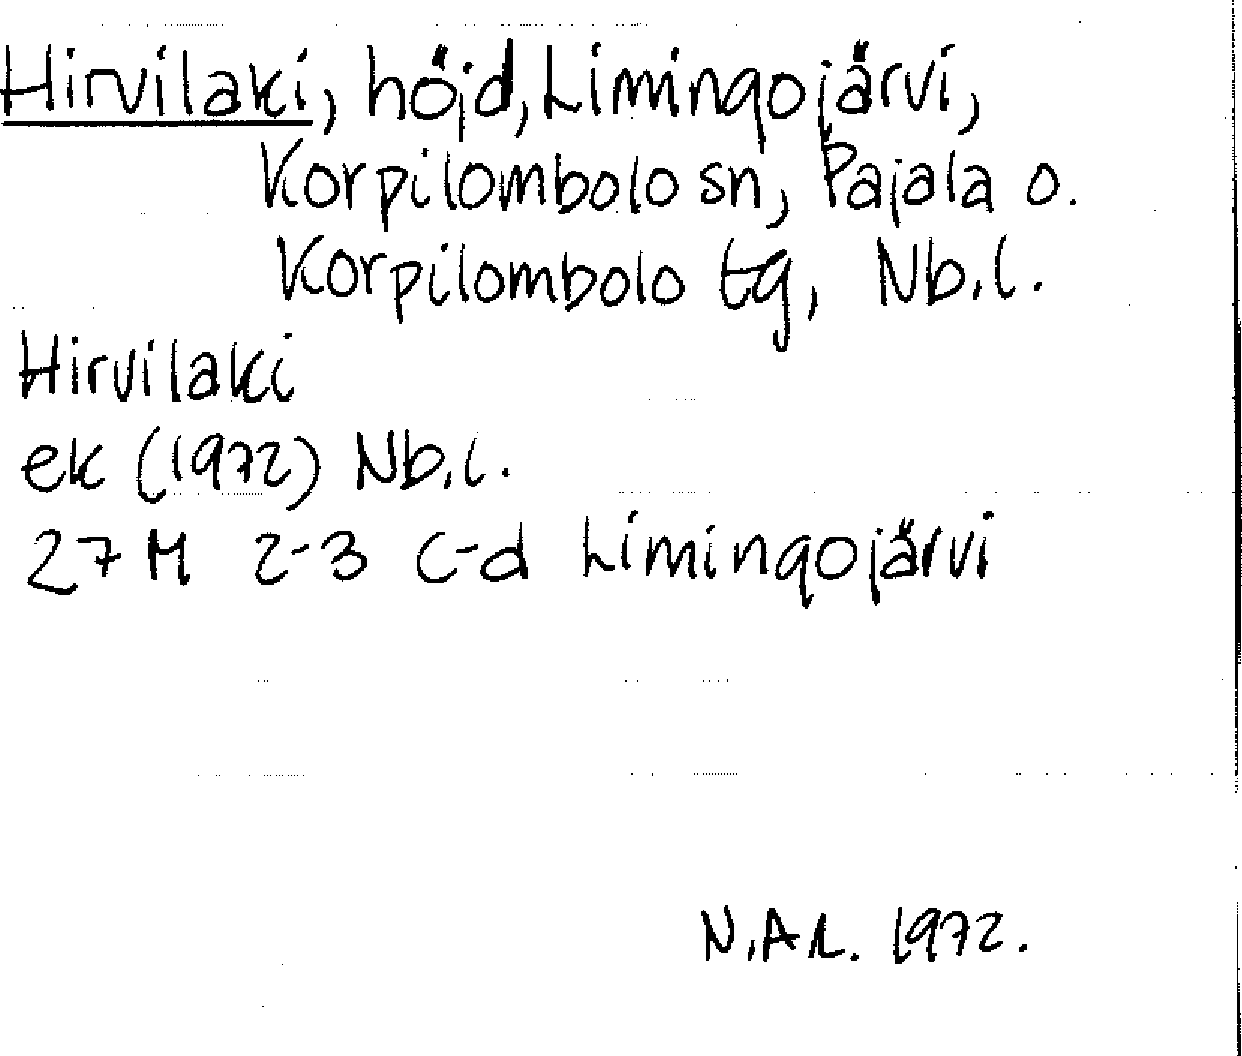 Hirvilaki, höjd, Limingojärvi,
Korpilombolo sn, Pajala o.
Korpilombolo tg, Nb.l.
Hirvilaki
ek (1972) Nb.l.
27 M 2-3 c-d Limingojärvi
N.A.L. 1972.